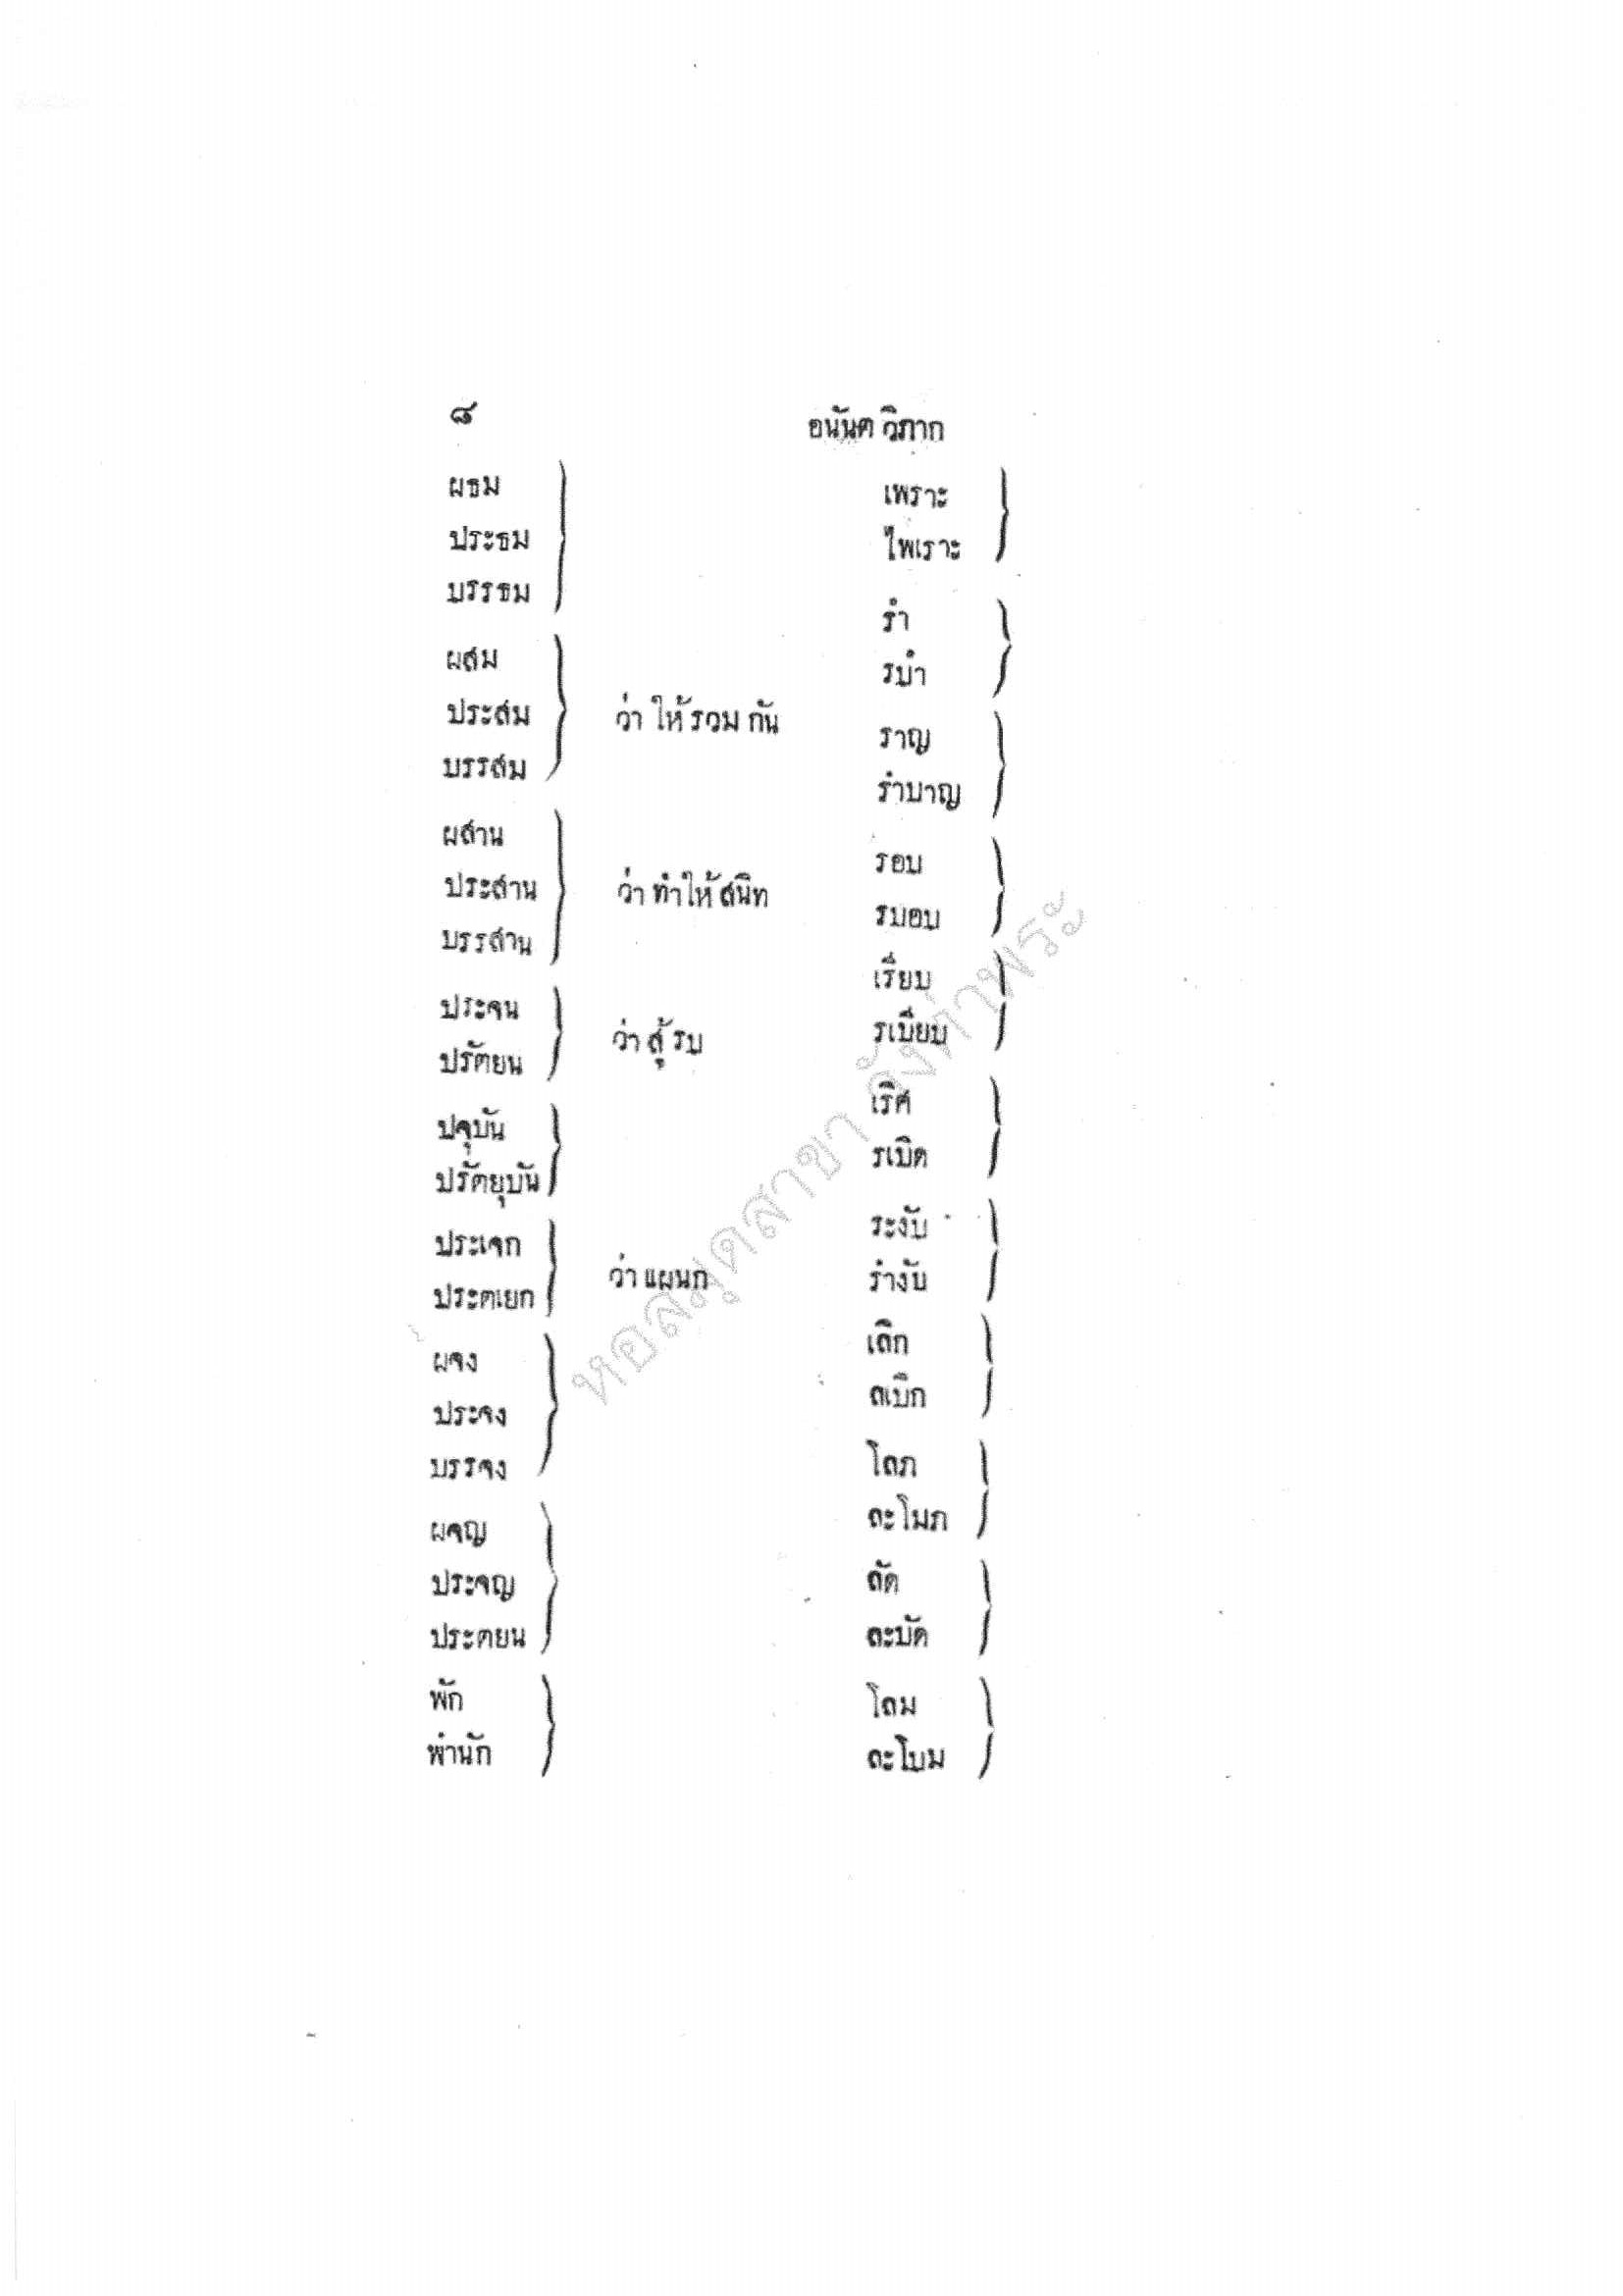 ๘
อนันต วิภาก
ผธม
ประธม
บรรธม
ผสม
ประสม
บรรสม
ว่า ให้ รวม กัน
ผสาน
ประสาน
บรรสาน
ว่า ทำ ให้ สนิท
ประจน
ปรัตยน
ว่า สู้ รบ
ปจุบัน
ปรัตยุบัน
ประเจก
ประตเยก
ว่า แผนก
ผจง
ประจง
บรรจง
ผจญ
ประจญ
ประตยน
พัก
พำนัก
เพราะ
ไพเราะ
รำ
รบำ
ราญ
รำบาญ
รอบ
รบอบ
เรียบ
รเบียบ
เริศ
รเบิด
ระงับ
รำงับ
เลิก
ลเบิก
โลภ
ละโมภ
ลัด
ละบัด
โลม
ละโบม
หอสมุดสาขา วังท่าพระ